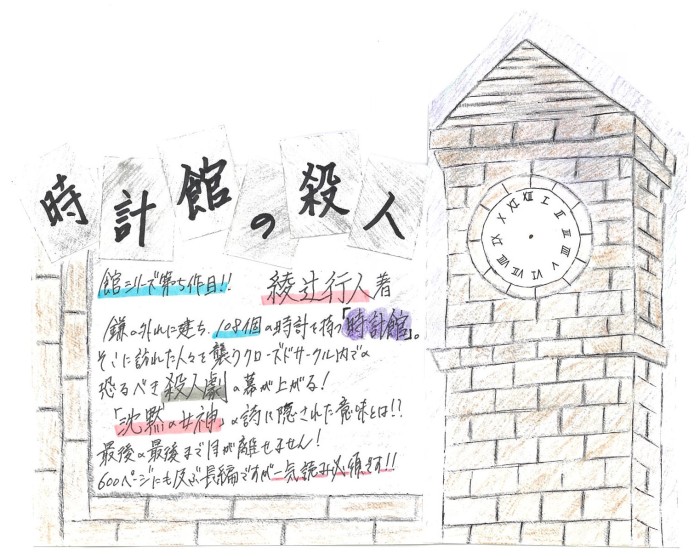 時計館の殺人
館シリーズ第5作目!! 綾辻行人著
鎌の外れに建ち、108個の時計を持つ「時計館」。
そこに訪れた人々を襲うクローズドサークル内での
恐るべき殺人劇の幕が上がる!
「沈黙の女神」の詩に隠された意味とは!?
最後の最後まで目が離せません!
600ページにも及ぶ長編ですが一気読み必須です!!
XII I II III IIII V VI VII VIII IX X XI